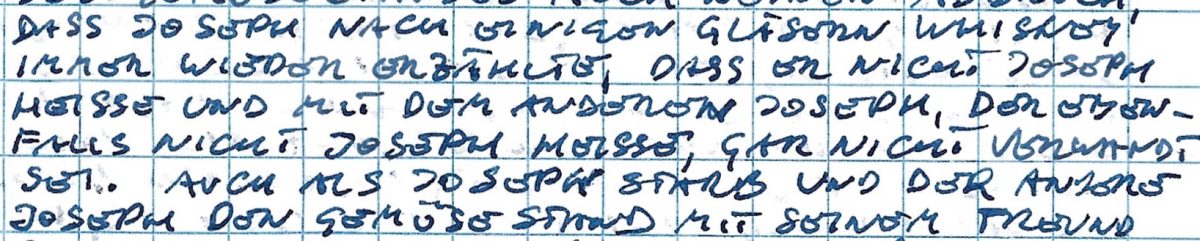 DASS JOSEPH NACH EINIGEN GLÄSERN WHISKEY
IMMER WIEDER ERZÄHLTE, DASS ER NICHT JOSEPH
HEISSE UND MIT DEM ANDEREN JOSEPH, DER EBEN-
FALLS NICHT JOSEPH HEISSE, GAR NICHT VERWANDT
SEI. AUCH ALS JOSEPH STARB UND DER ANDERE
JOSEPH DEN GEMÜSESTAND MIT SEINEM FREUND